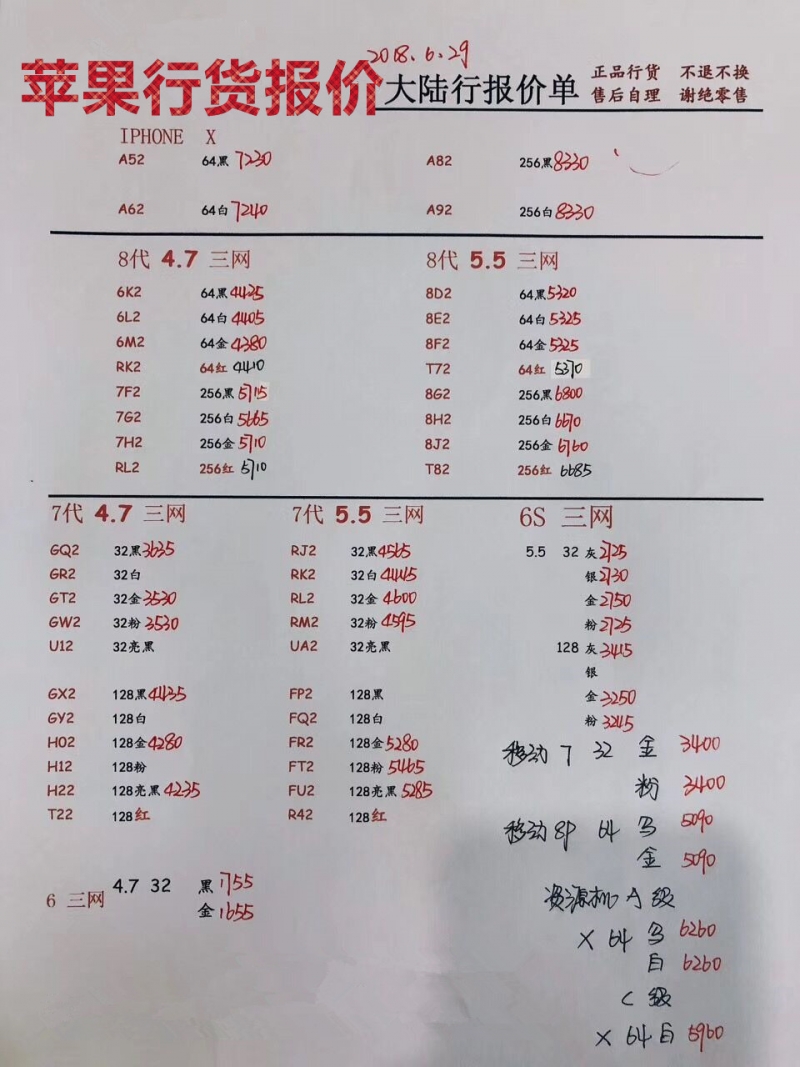 2018.6.29
苹果行货报价 大陆行报价单 正品行货 不退不换
售后自理 谢绝零售
IPHONE X
A52 64黑 7230 A82 256黑 8330
A62 64白 7240 A92 256白 8330
8代 4.7 三网 8代 5.5 三网
6K2 64黑 4435 8D2 64黑 5320
6L2 64白 4405 8E2 64白 5325
6M2 64金 4380 8F2 64金 5325
RK2 64红 4410 T72 64红 5370
7F2 256黑 5715 8G2 256黑 6800
7G2 256白 5665 8H2 256白 6670
7H2 256金 5710 8J2 256金 6760
RL2 256红 5710 T82 256红 6685
7代 4.7 三网 7代 5.5 三网 6S 三网
GQ2 32黑 3635 RJ2 32黑 4565 5.5 32 灰 2725
GR2 32白 RK2 32白 4445 银 2730
GT2 32金 3530 RL2 32金 4600 金 2750
GW2 32粉 3530 RM2 32粉 4595 粉 2725
U12 32亮黑 UA2 32亮黑 128 灰 3415
银
GX2 128黑 4435 FP2 128黑 金 3250
GY2 128白 FQ2 128白 粉 3245
H02 128金 4280 FR2 128金 5280
H12 128粉 FT2 128粉 5465
H22 128亮黑 4235 FU2 128亮黑 5285
T22 128红 R42 128红
移动 7 32 金 3400
粉 3400
移动 8P 64 5090
金 5090
6 三网 4.7 32 黑 1755
金 1655
资源机 A 级
X 64 6260
白 6260
C 级
X 64 白 5960